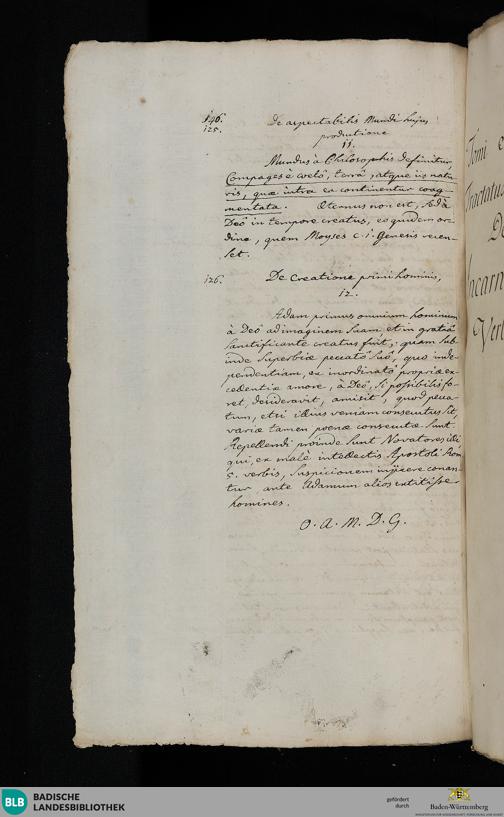 146.
125.
De aspectabilis Mundi hujus
productione
11.
Mundus à Philosophis definitur,
Compages è coelô, terrâ, atque iis natu-
ris, quae intra ea continentur coag-
mentata. AEternus non est, sed à
Deô in tempore creatus, eo quidem or-
dine, quem Moyses c. 1. Genesis recen-
set.
126.
De Creatione primi hominis,
12.
Adam primus omnium hominum
à Deô ad imaginem suam, et in gratiâ
sanctificante creatus fuit; quam sub-
inde superbiae peccatô suô, quo inde-
pendentiam, ex inordinatô propriae ex-
cellentiae amore, à Deô, si possibilis fo-
ret, desideravit, amisit; quod pecca-
tum, etsi illius veniam consecutus sit,
variae tamen poenae consecutae sunt.
Repellendi proinde sunt Novatores illi
qui, ex malè intellectis Apostoli Rom
5. verbis, suspicionem injicere conan-
tur, ante Adamum alios extitisse
homines.
O. A. M. D. G.
Tomi
Tractatus
De
Incarn
Verb
BLB
BADISCHE
LANDESBIBLIOTHEK
gefördert
durch
Baden-Württemberg